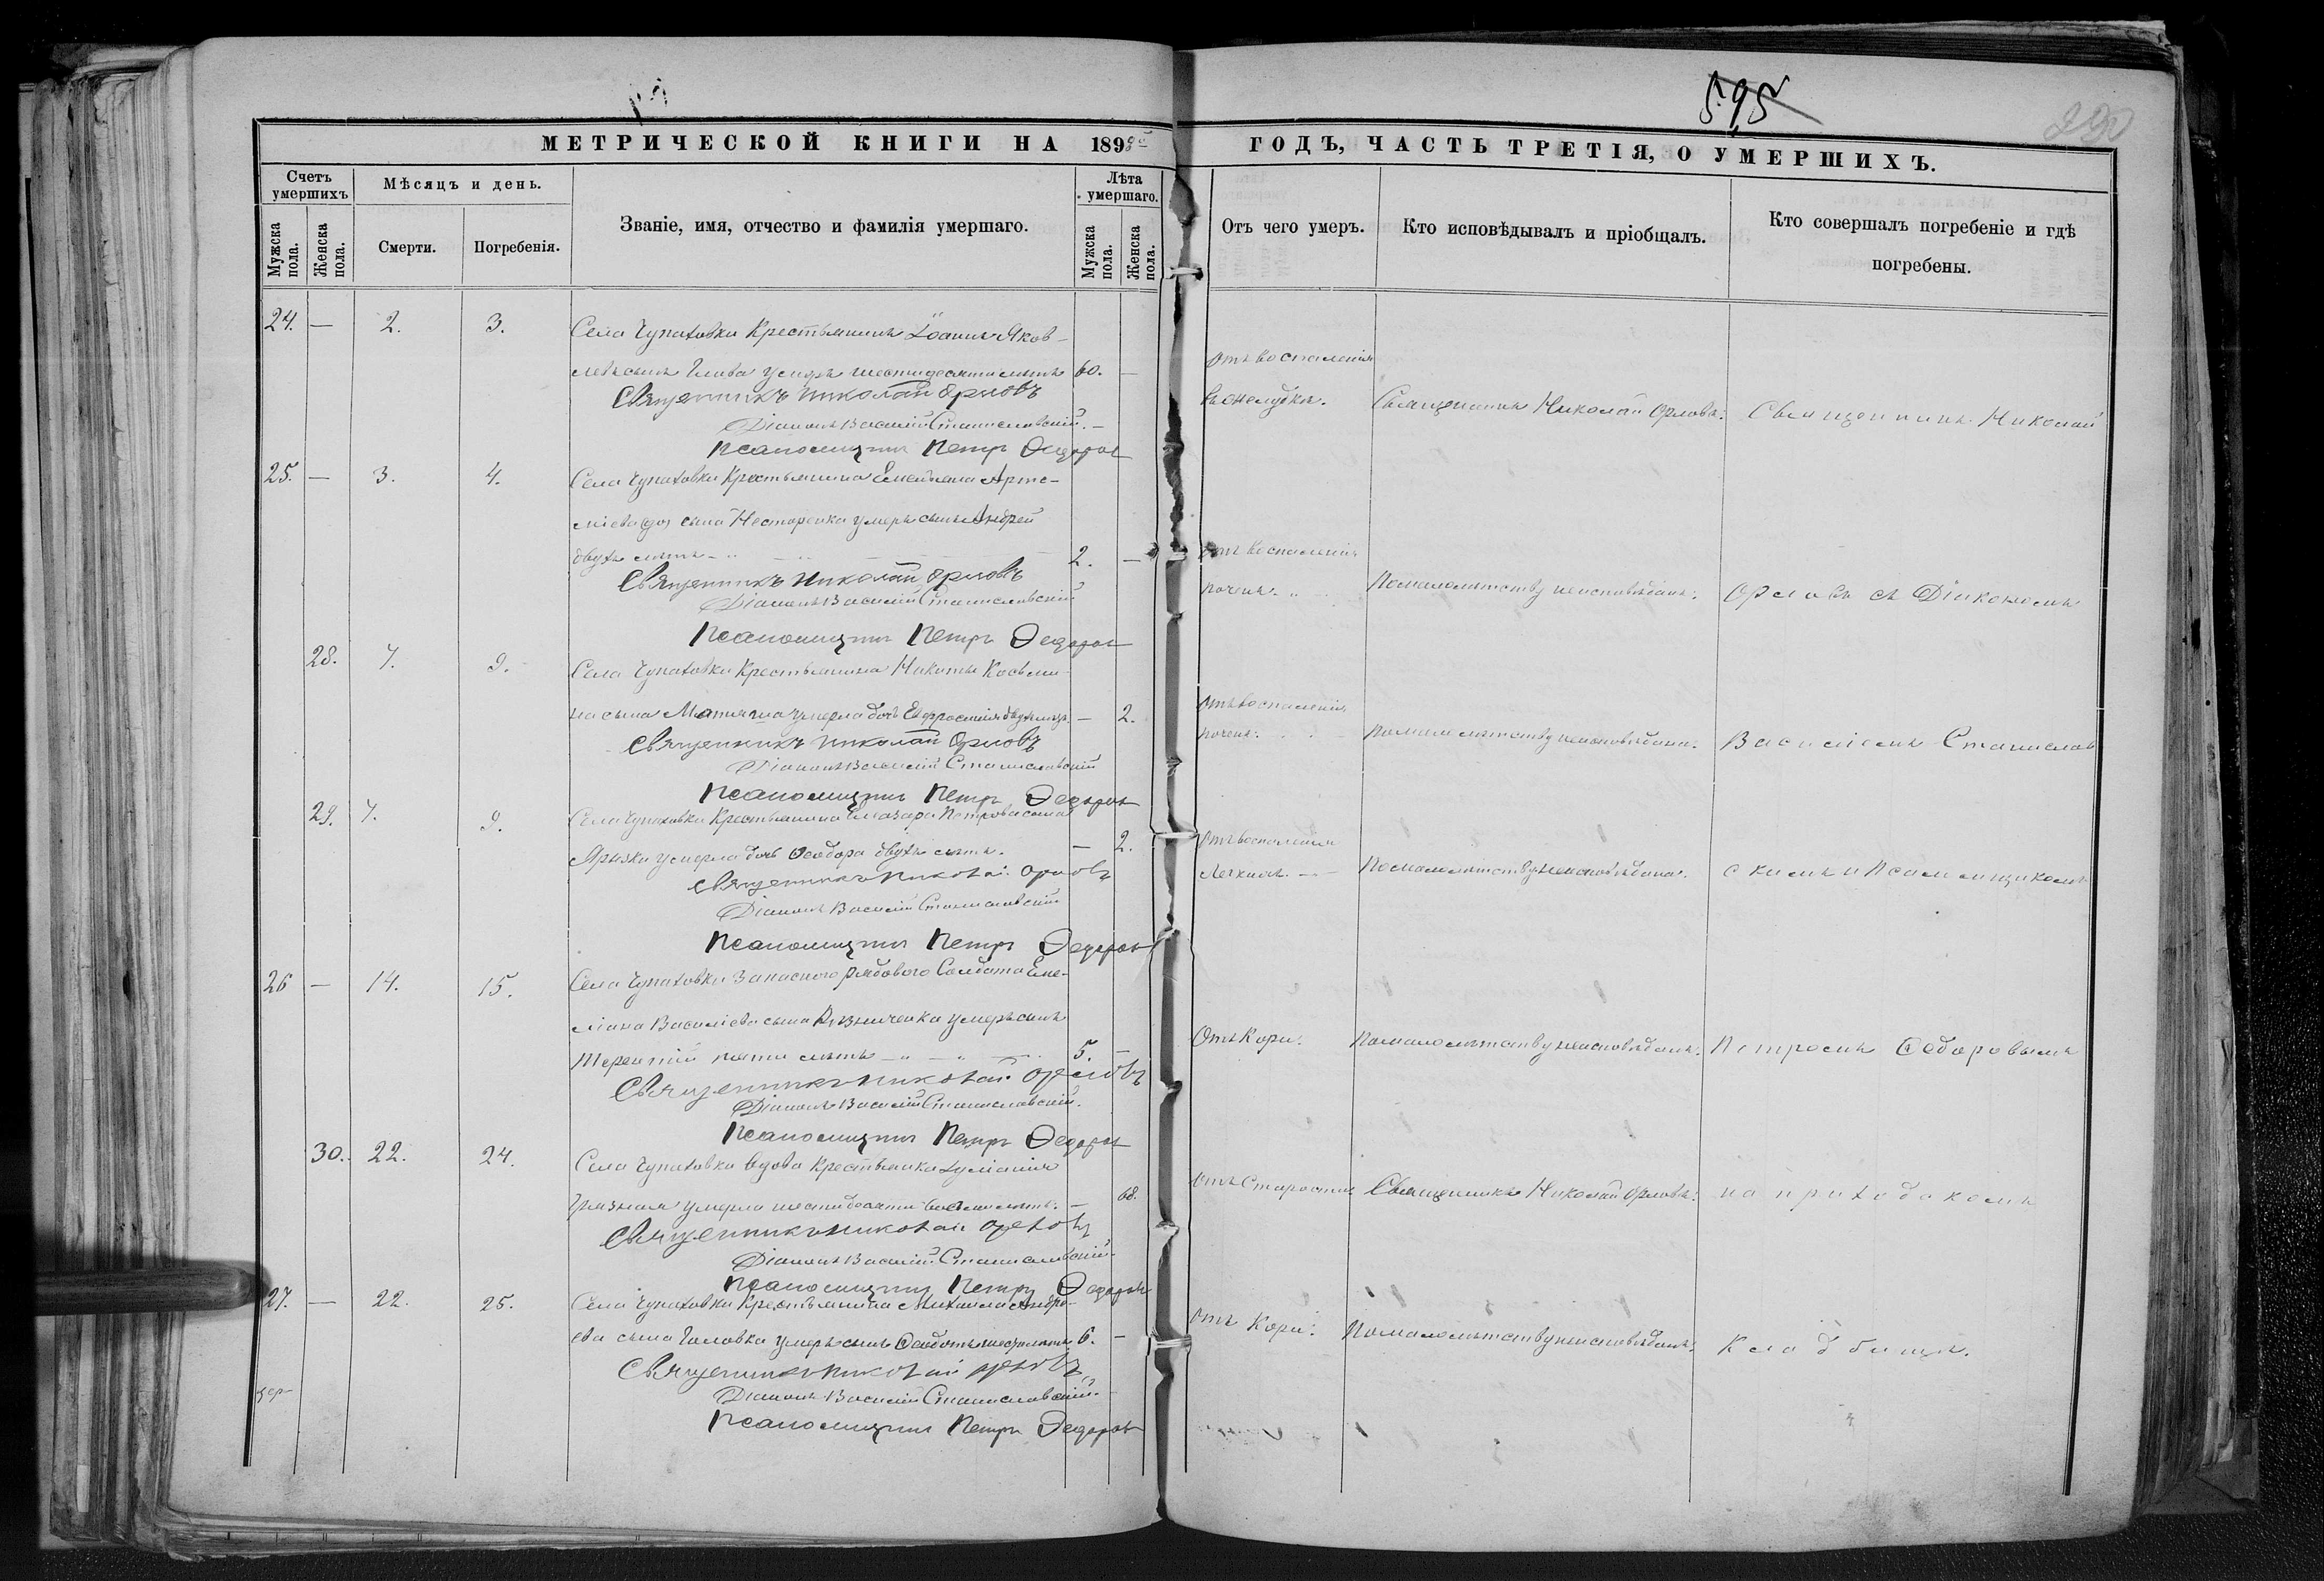 595
МЕТРИЧЕСКОЙ КНИГИ НА 1898й ГОДЪ, ЧАСТЬ ТРЕТІЯ, О УМЕРШИХЪ.
Счетъ умершихъ
Мѣсяцъ и день.
Званіе, имя, отчество и фамилія умершаго.
Лѣта умершаго.
Отъ чего умеръ.
Кто исповѣдывалъ и пріобщалъ.
Кто совершалъ погребеніе и гдѣ
погребены.
Мужска пола.
Женска пола.
Смерти.
Погребенія.
Мужска пола.
Женска пола.
24. — 2. 3. Села Чупаховки Крестьянинъ Іоаннъ Яков-
левъ сынъ умеръ шестидесяти лѣтъ 60. —
Священникъ Николай Орловъ
Діаконъ Василій Станиславскій. —
Псаломщикъ Петръ Федоровъ
Отъ воспаленія
Священникъ Николай Орловъ.
Священникъ Николай
25. — 3. 4. Села Чупаховки Крестьянина Артe-
міева сына Нестеренка умеръ сынъ Андрей
двухъ лѣтъ 2. —
Священникъ Николай Орловъ
Діаконъ Василій Станиславскій
Псаломщикъ Петръ Федоровъ
Отъ воспаленія
почекъ.
Помалолѣтству неисповѣданъ.
Орловъ съ Діакономъ
28. 7. 9. Села Чупаховки Крестьянина Никиты Косьми-
на сына умерла дочь Евфросинія — 2.
Священникъ Николай Орловъ
Діаконъ Василій Станиславскій
Псаломщикъ Петръ Федоровъ
Отъ воспаленія
почекъ.
Помалолѣтству неисповѣдана.
Василіемъ Станислав
29. 7. 9. Села Чупаховки Крестьянина Петрова сына
умерла дочь Феодора двухъ лѣтъ. — 2.
Священникъ Николай Орловъ
Діаконъ Василій Станиславскій
Псаломщикъ Петръ Федоровъ
Отъ воспаленія
Легкихъ. —
Помалолѣтству неисповѣдана.
скимъ и Псаломщикомъ
26 — 14. 15. Села Чупаховки Запаснаго рядового Солдата Еме-
ліана Василіева сына умеръ сынъ
Терентій пяти лѣтъ 5. —
Священникъ Николай Орловъ
Діаконъ Василій Станиславскій.
Псаломщикъ Петръ Федоровъ
Отъ Кори.
Помалолѣтству неисповѣданъ.
Петромъ Федоровымъ
30. 22. 24. Села Чупаховки вдова Крестьянка Іуліанія
Грязная умерла шестидесяти восьми лѣтъ. — 68.
Священникъ Николай Орловъ
Діаконъ Василій Станиславскій.
Псаломщикъ Петръ Федоровъ
Отъ Старости
Священникъ Николай Орловъ.
на приходскомъ
27. — 22. 25. Села Чупаховки Крестьянина Михаила Андре-
ева сына Головка умеръ сынъ Феодотъ шести лѣтъ 6. —
Священникъ Николай Орловъ
Діаконъ Василій Станиславскій.
Псаломщикъ Петръ Федоровъ
Отъ Кори.
Помалолѣтству неисповѣданъ.
Кладбищѣ.